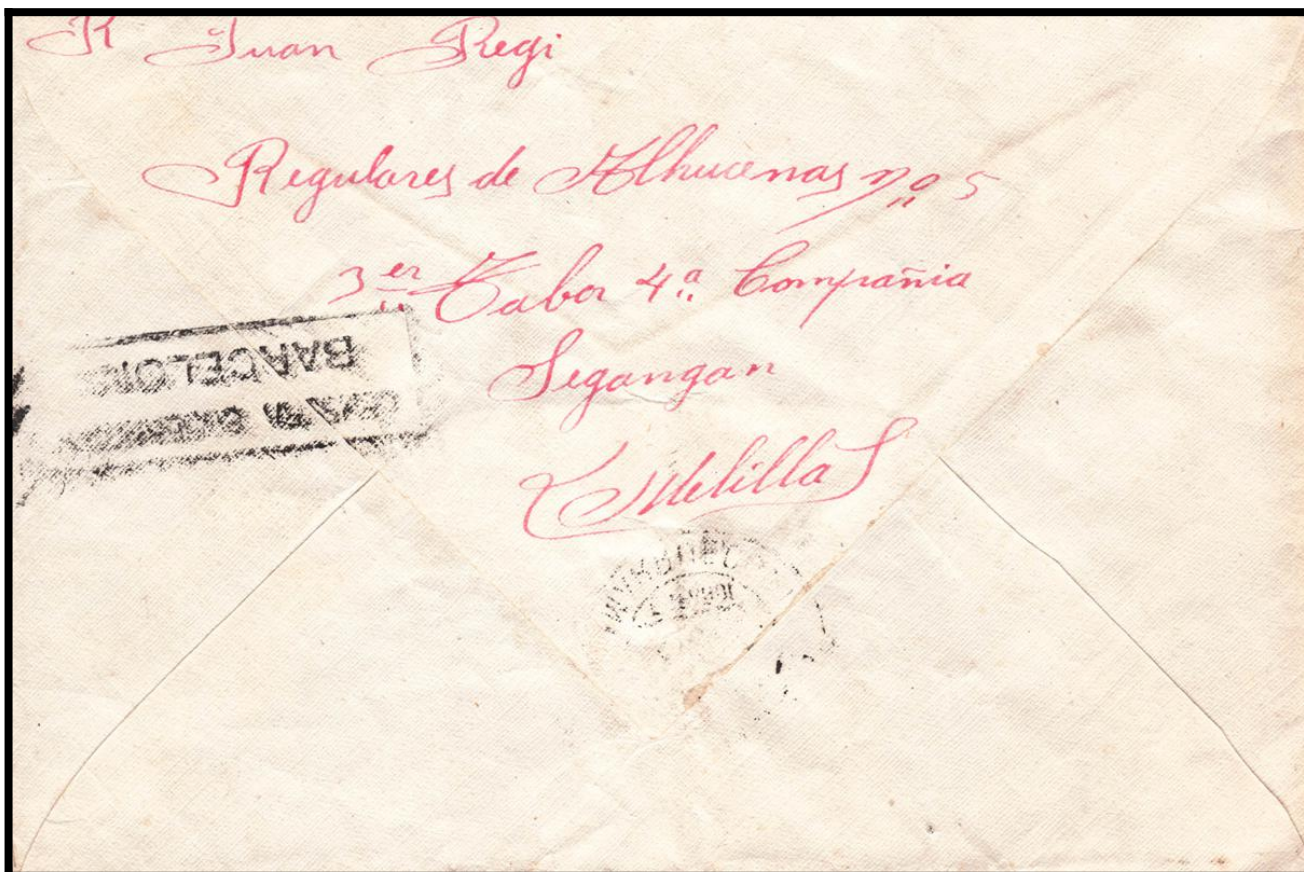 R Juan Regi
Regulares de Alhucemas nº 5
3er Tabor 4ª Compañia
Segangan
Melilla
BARCELONA